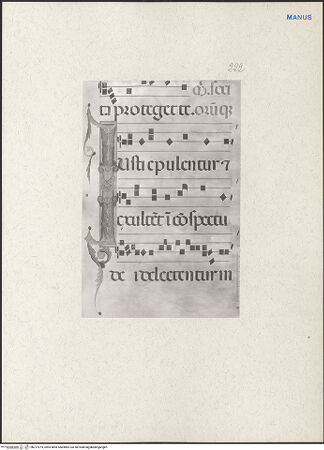 MANUS
222
ti proteget te. oru͠ q͛
Iusti epulentur ⁊
exulte͠t i͠ co͠spectu
de i delectentur in